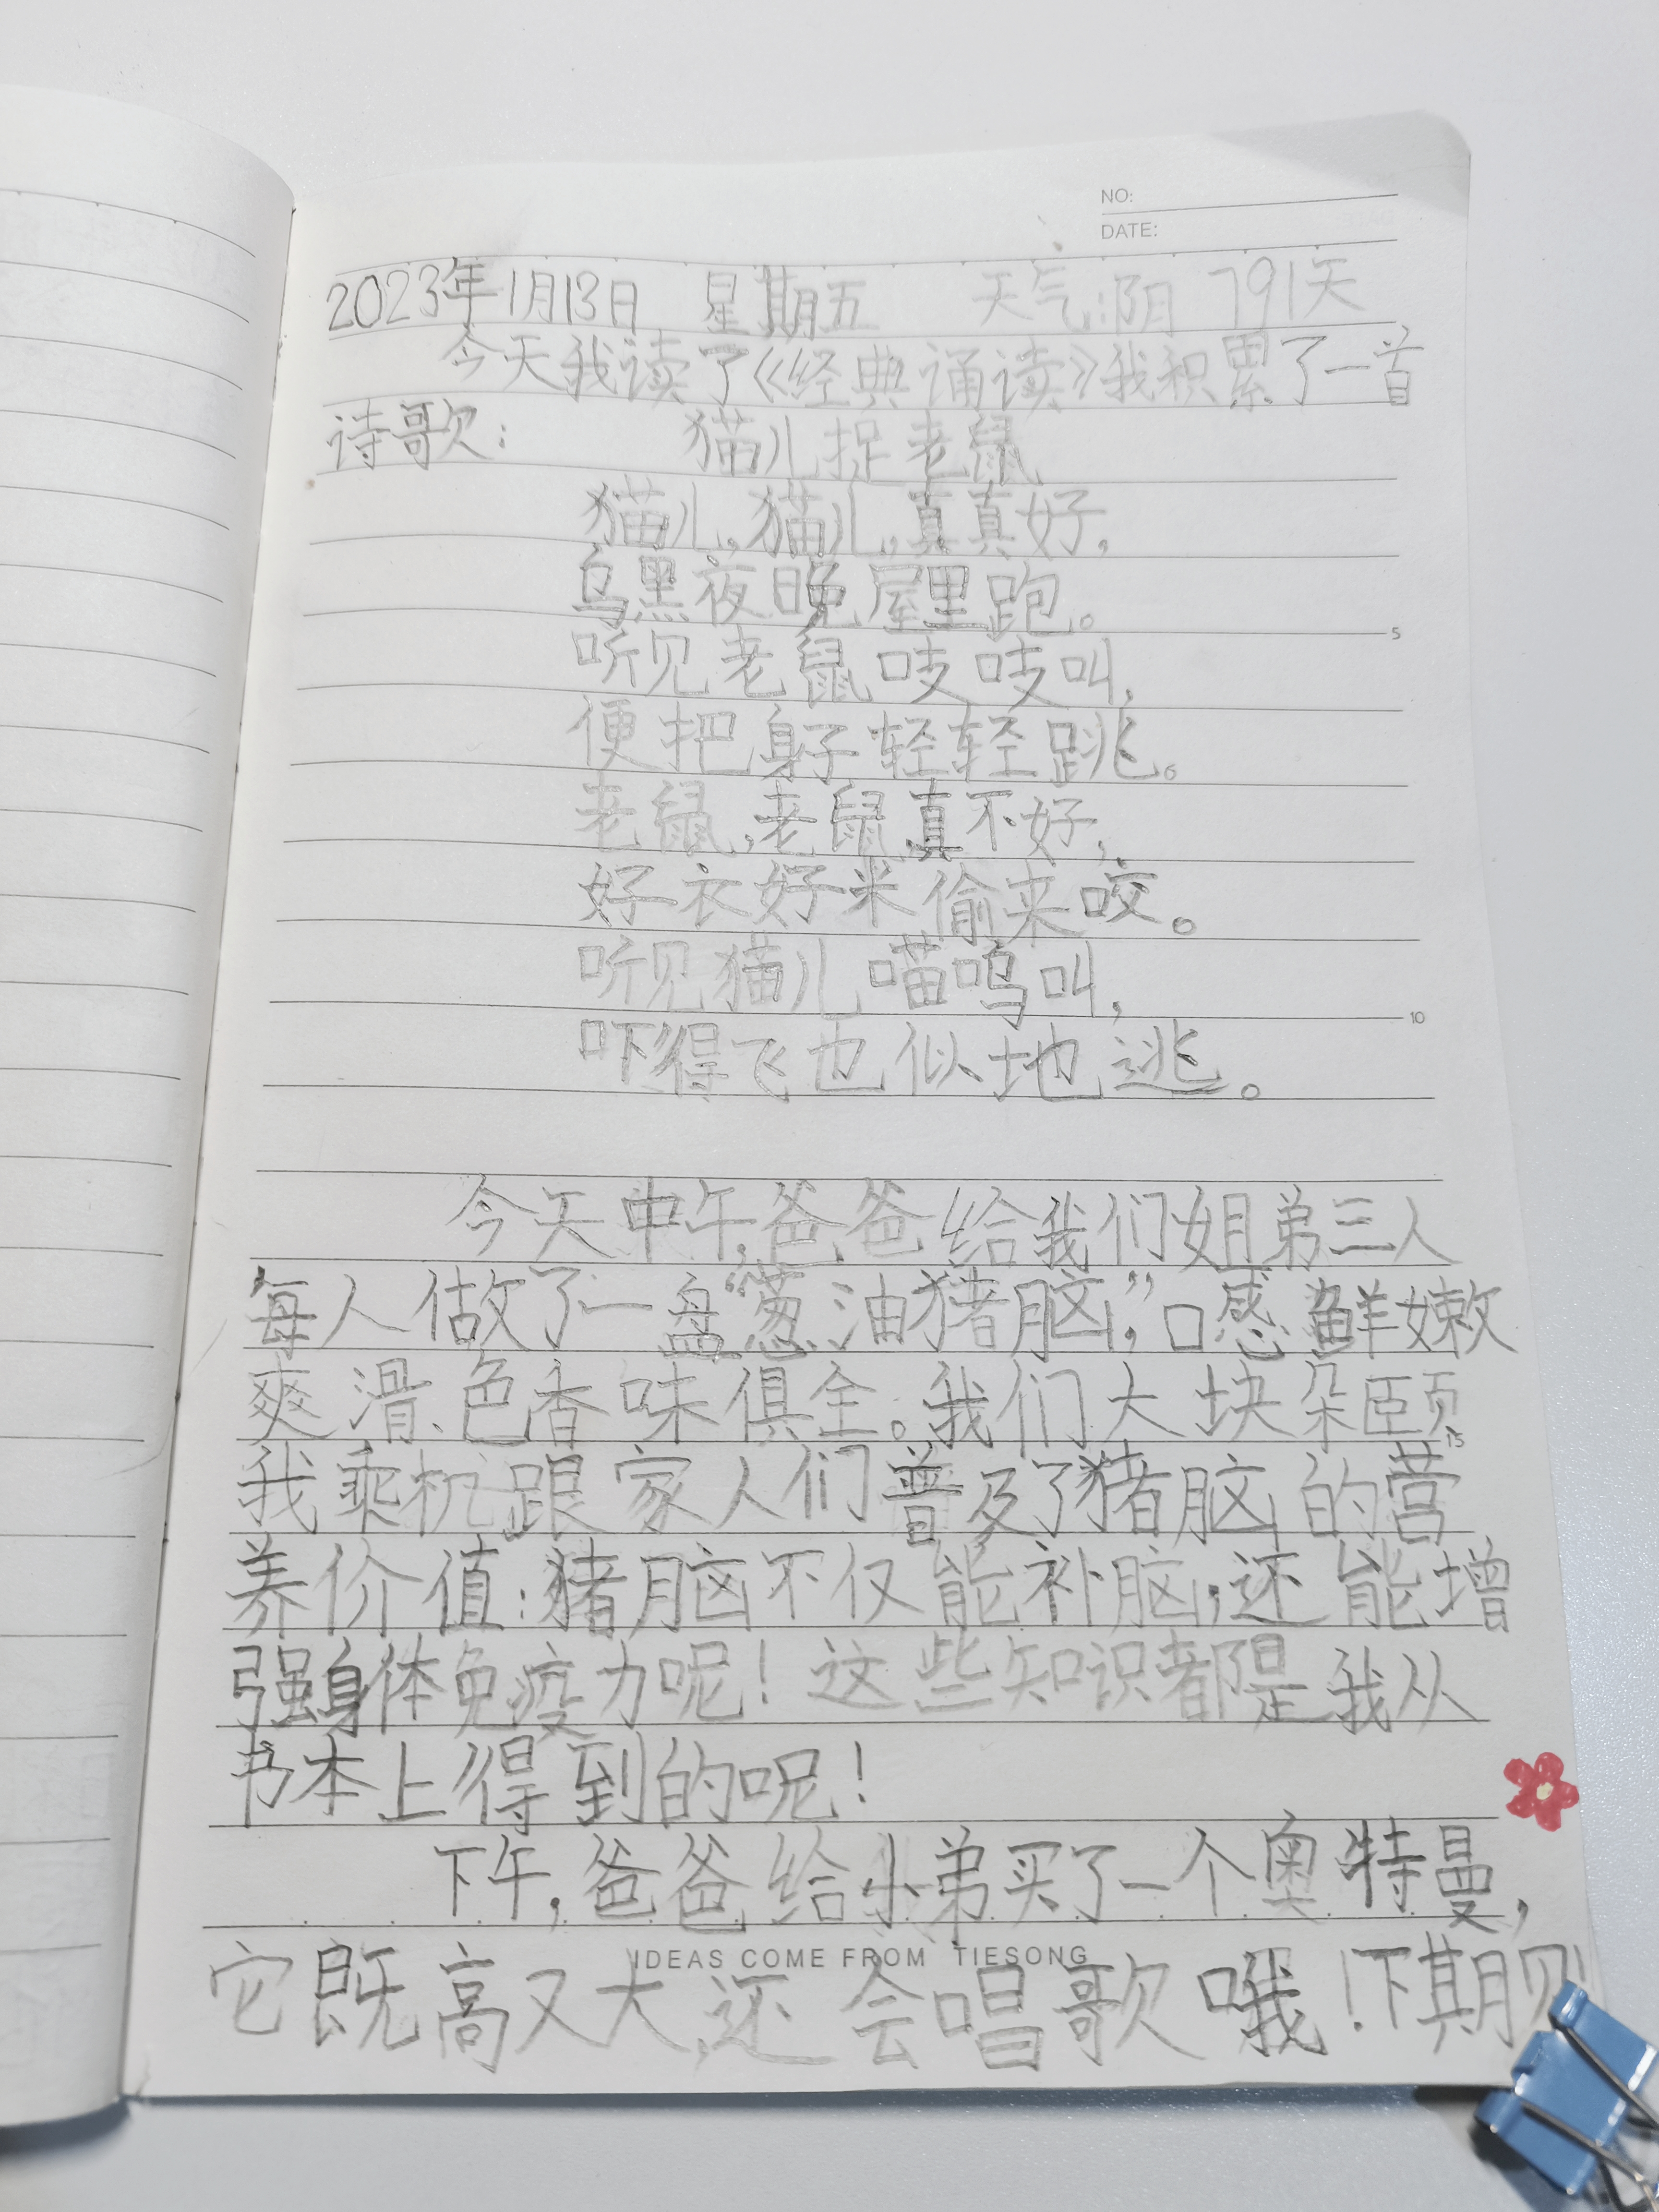 NO:
DATE:
2023年1月13日 星期五 天气:阴 791天
今天我读了《经典诵读》我积累了一首
诗歌: 猫儿捉老鼠
猫儿,猫儿,真真好,
乌黑夜晚屋里跑。
5
听见老鼠吱吱叫,
便把身子轻轻跳。
老鼠,老鼠真不好,
好衣好米偷来咬。
听见猫儿喵呜叫,
10
吓得飞也似地逃。
今天中午,爸爸给我们姐弟三人
每人做了一盘“葱油猪脑”,口感鲜嫩
爽滑、色香味俱全。我们大块朵颐
15
我乘机跟家人们普及了猪脑的营
养价值:猪脑不仅能补脑,还能增
强身体免疫力呢!这些知识都是我从
书本上得到的呢!
下午,爸爸给小弟买了一个奥特曼,
IDEAS COME FROM TIESONG
它既高又大,还会唱歌哦!下期见